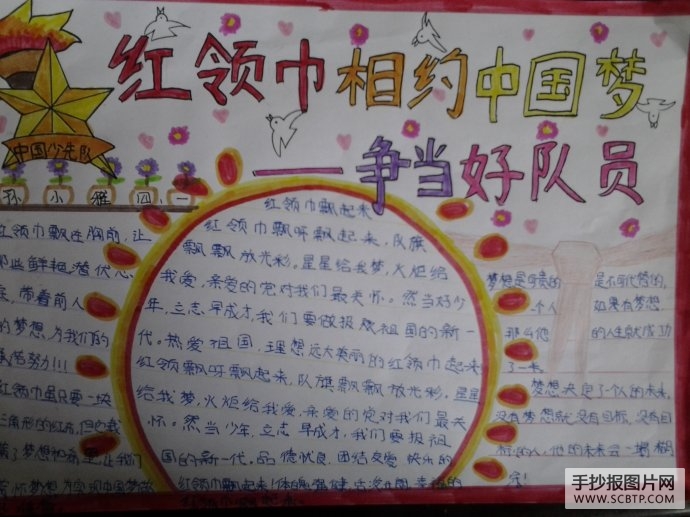 红领巾相约中国梦
——争当好队员
中国少年队
孙小雅四、一
红领巾飘在胸前,让
那些鲜艳潜伏心
底,带着前人
的梦想,为我们的
成长努力!!!
红领巾虽只要一块
三角形的红布,但
了梦想和希望,让我们
怀梦想,为实现中国梦
红领巾飘起来
红领巾飘呀飘起来,队旗
飘飘放光彩。星星给我梦,火炬给
我爱,亲爱的党对我们最关怀。然当好少
年,立志早成才,我们要做报恩祖国的新一
代。热爱祖国,理想远大美丽的红领巾飘起来
红领飘呀飘起来,队旗飘飘放光彩,星星
给我梦,火炬给我爱,亲爱的党对我们最关
怀。然当少年,立志早成才,我们要报祖
国的新一代。品德优良,团结友爱 快乐的
红领巾飘起来!体魄强健
梦想是宝贵的 是不可代替的,
一个人 如果有梦想
那么他 的人生就成功
了一半
梦想决定了个人的未来,
没有梦想就没有目标,没有目
标的人,他的未来会一塌糊
涂!
手抄报图片网
WWW.SCBTP.COM